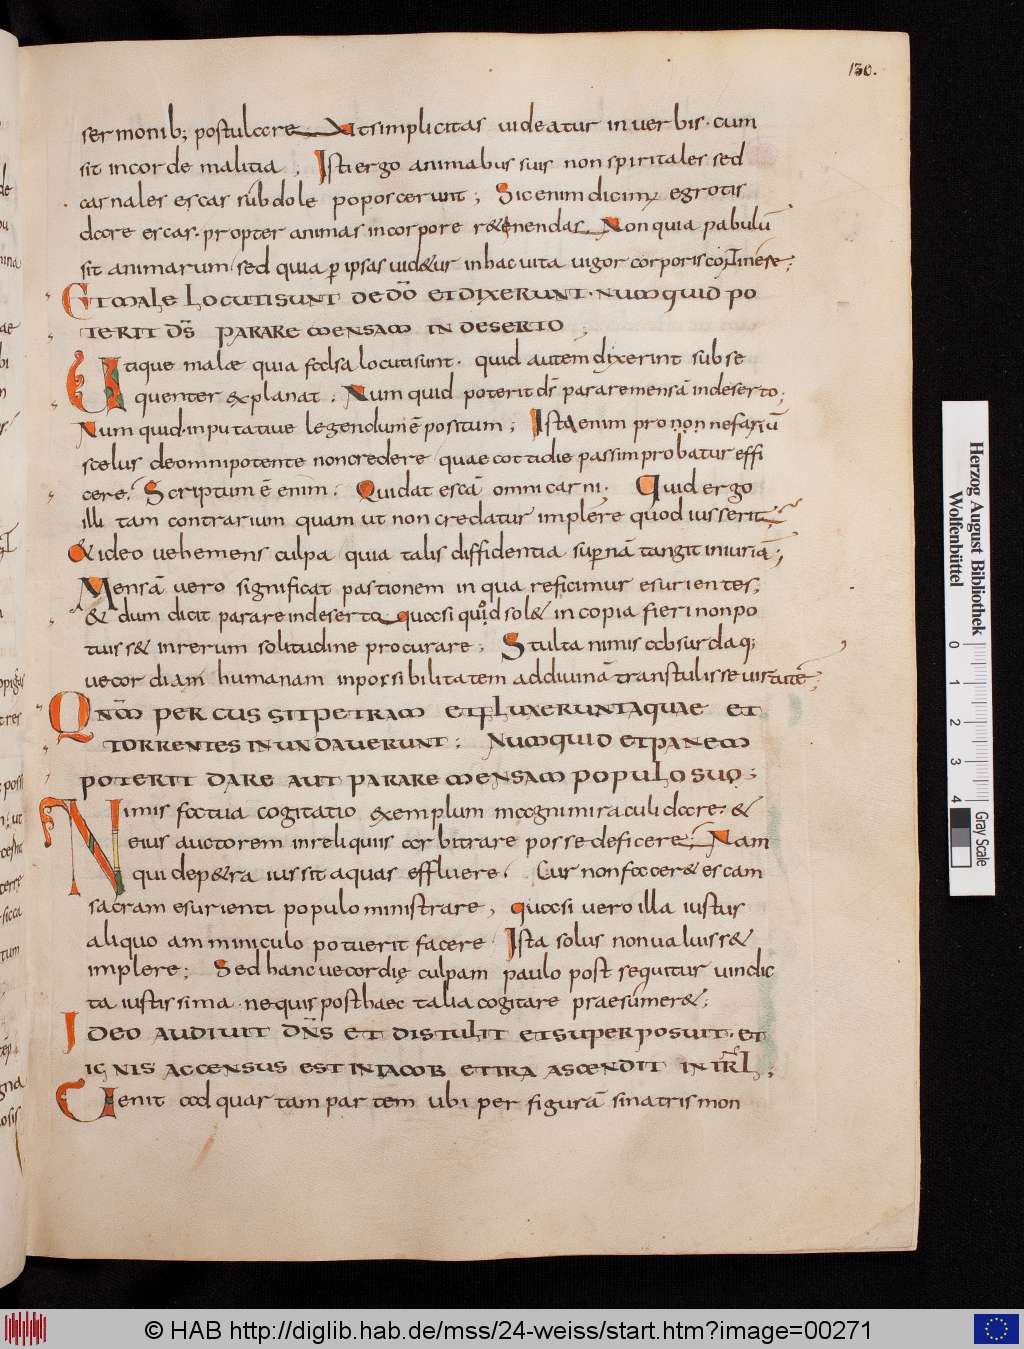 130.
sermonib; postulare Ut simplicitas uideatur in uerbis. cum
sit in corde malitia; Isti ergo animabus suis non spiritales sed
carnales escas subdole poposcerunt; Sic enim dicim; egrotis
dare escas. propter animas in corpore retenendas. Non quia pabulū
sit animarum sed quia p ipsas uidetur in hac uita uigor corporis cōtinese;
Et male locuti sunt de dō et dixerunt. numquid po
terit ds̄ parare mensam in deserto;
Utique malae quia falsa locuti sunt. quid autem dixerint subse
quenter explanat. Numquid poterit ds̄ parare mensā in deserto;
Numquid. inputatiue legendum ē positum; Ista enim pro non nefariū
scelus de omnipotente non credere quae cottidie passim probatur effi
cere. Scriptum ē enim. Qui dat escā omni carni. Quid ergo
illi tam contrarium quam ut non credatur implere quod iusserit
& ideo uehemens culpa quia talis diffidentia supnā tangit iniuriā;
Mensā uero significat pastionem in qua reficimur esurientes;
& dum dicit parare in deserto quasi quod sol& in copia fieri non po
tuiss& in rerum solitudine procurare; Stulta nimis absurdaq;
uecordiam humanam inpossibilitatem ad diuinā transtulisse uirtutē;
Qnm̄ percussit petram et fluxerunt aquae et
torrentes inundauerunt; Numquid et panem
poterit dare aut parare mensam populo suo;
Nimis fatua cogitatio exemplum magni miraculi dare. &
eius auctorem in reliquiis arbitrare posse deficere; Nam
qui de p&ra iussit aquas effluere. Cur non facer& escam
sacram esurienti populo ministrare, quasi uero illa iustus
aliquo amminiculo potuerit facere Ista solus non ualuiss&
implere; Sed hanc uecordię culpam paulo post sequitur uindic
ta iustissima. nequis posthaec talia cogitare praesumer&;
Ideo audiuit dn̄s et distulit et superposuit. et
ignis accensus est in iacob et ira ascendit in isrl̄;
Uenit ad quartam partem ubi per figurā sinatris mon
Herzog August Bibliothek
Wolfenbüttel
0 1 2 3 4
Gray Scale
© HAB http://diglib.hab.de/mss/24-weiss/start.htm?image=00271